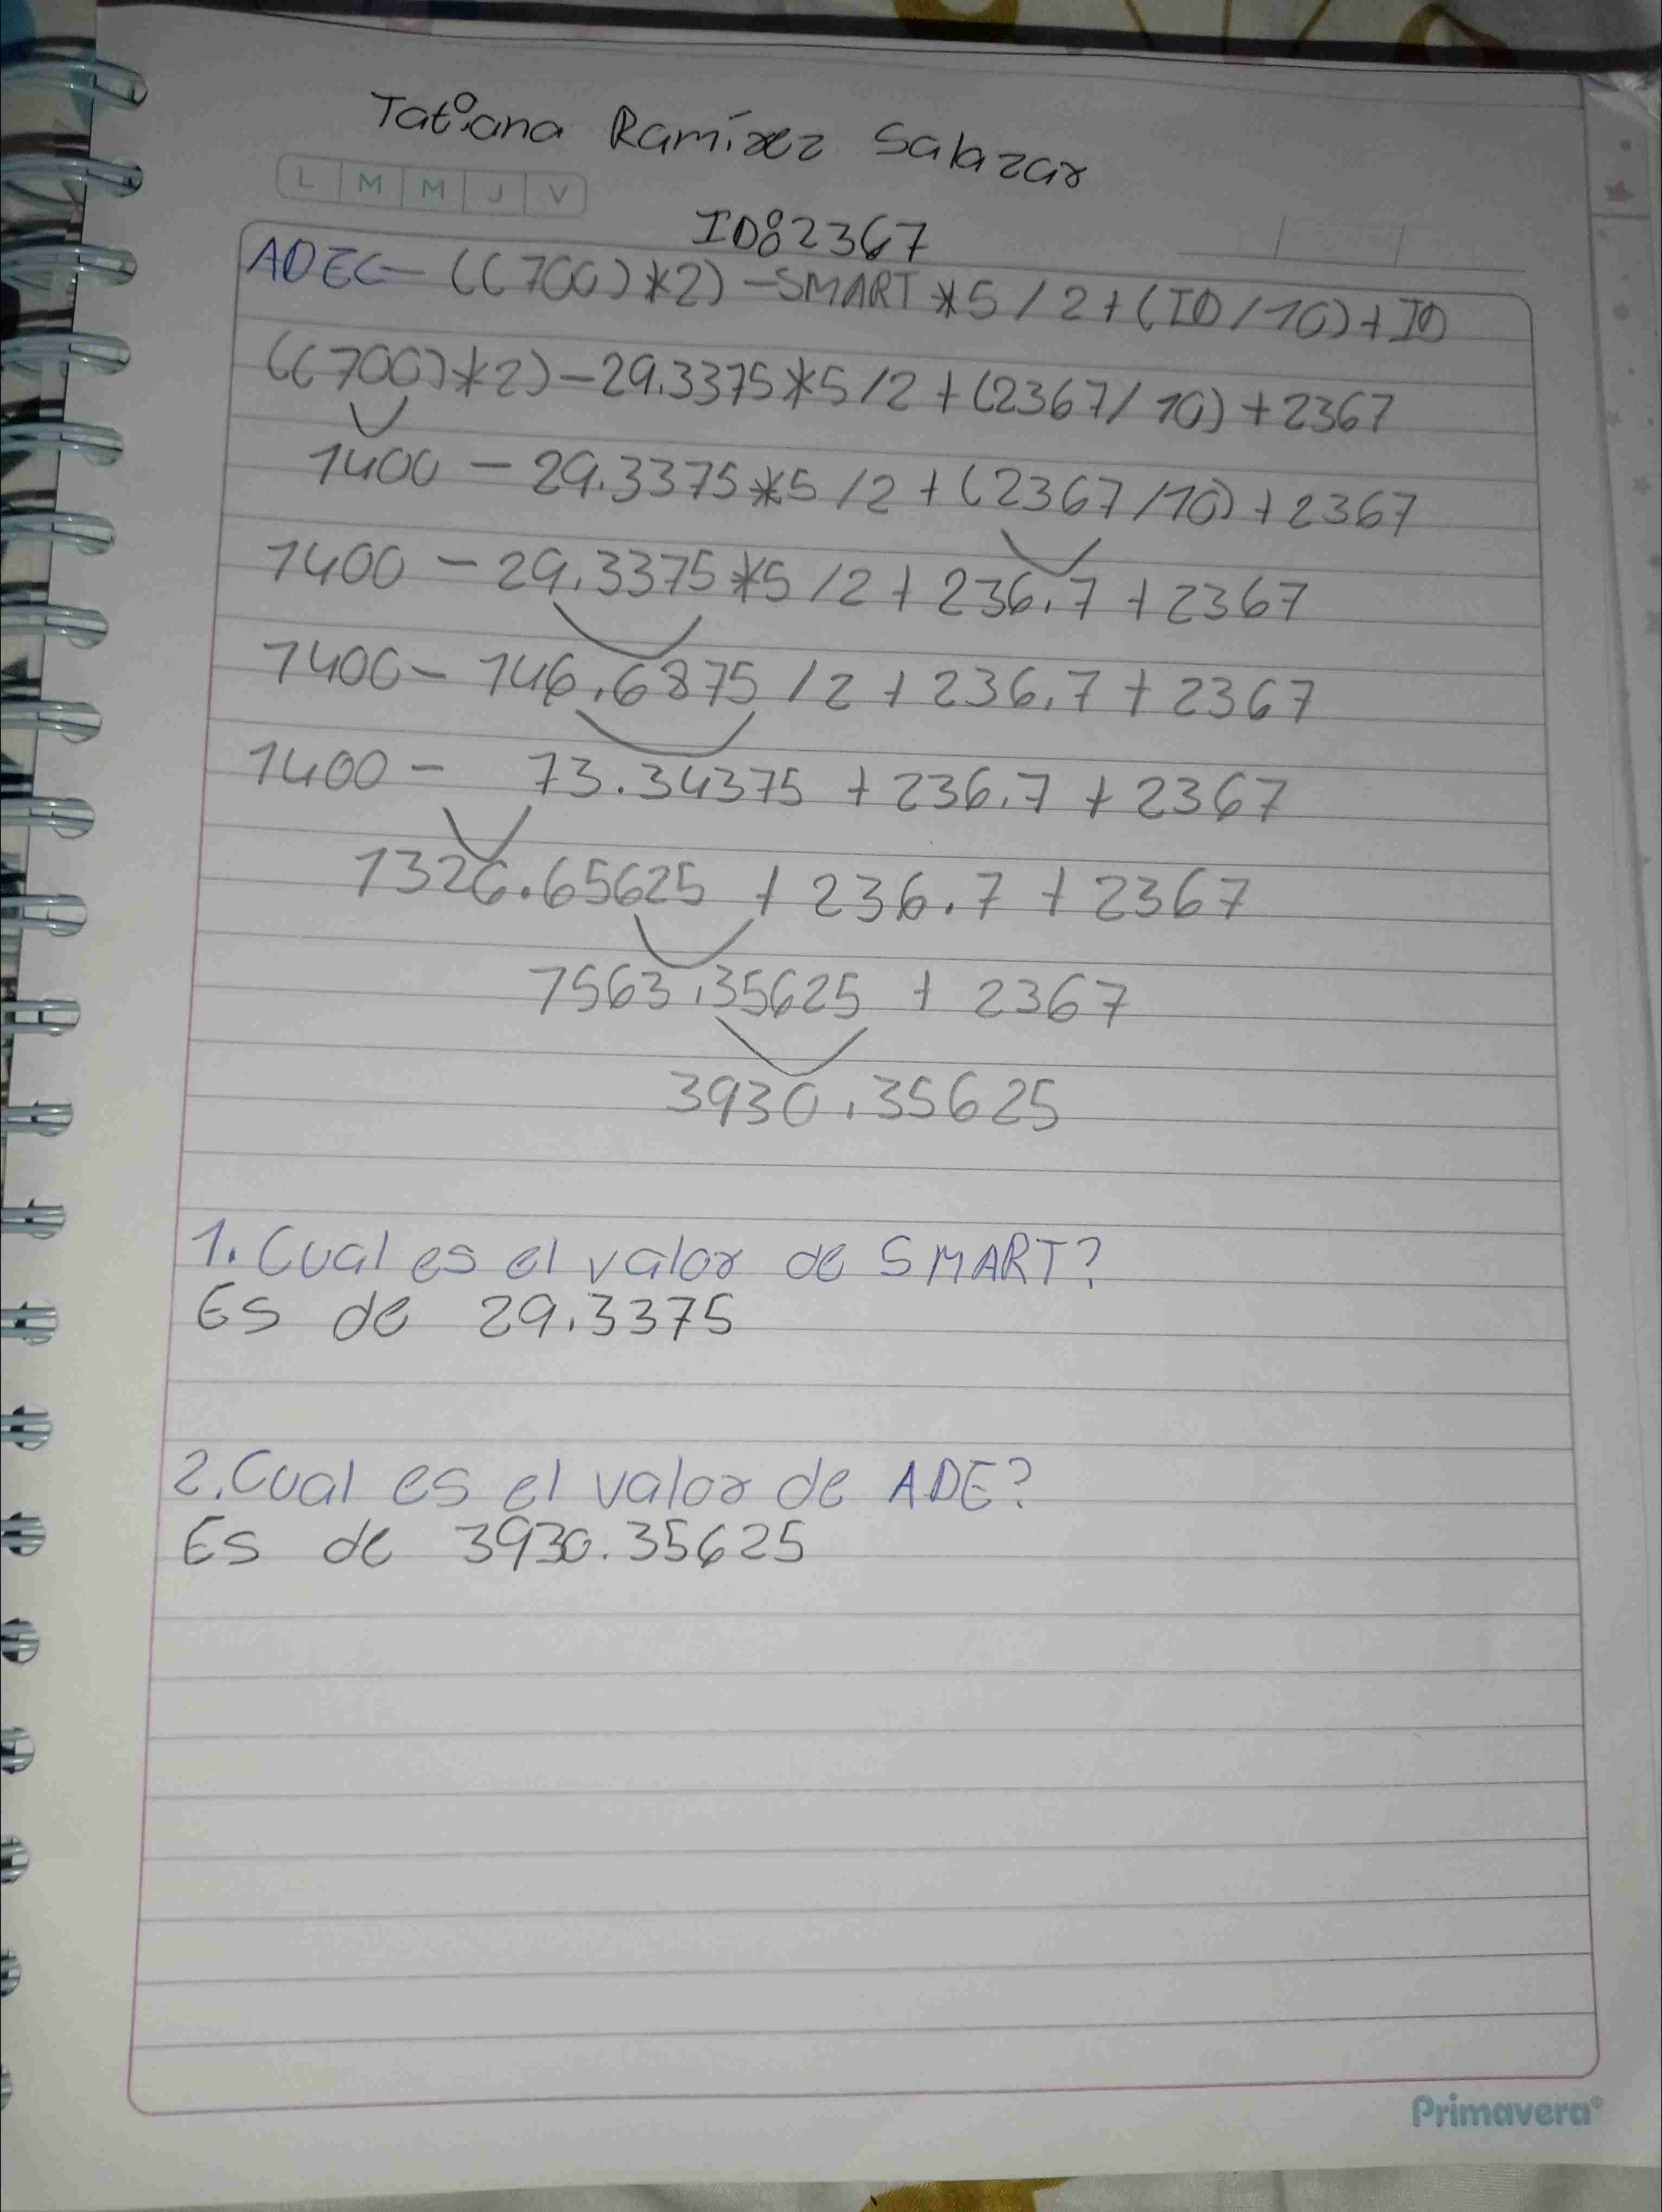 Tatiana Ramírez Salazar
L M M J V
ID: 2367
ADE <- ((700)*2)-SMART*5/2+(ID/10)+ID
((700)*2)-29.3375*5/2+(2367/10)+2367
1400 - 29.3375*5/2+(2367/10)+2367
1400 - 29.3375*5/2+236.7+2367
1400 - 146.6875/2+236.7+2367
1400 - 73.34375+236.7+2367
1326.65625+236.7+2367
1563.35625 + 2367
3930.35625
1. Cual es el valor de SMART?
Es de 29.3375
2. Cual es el valor de ADE?
Es de 3930.35625
Primavera